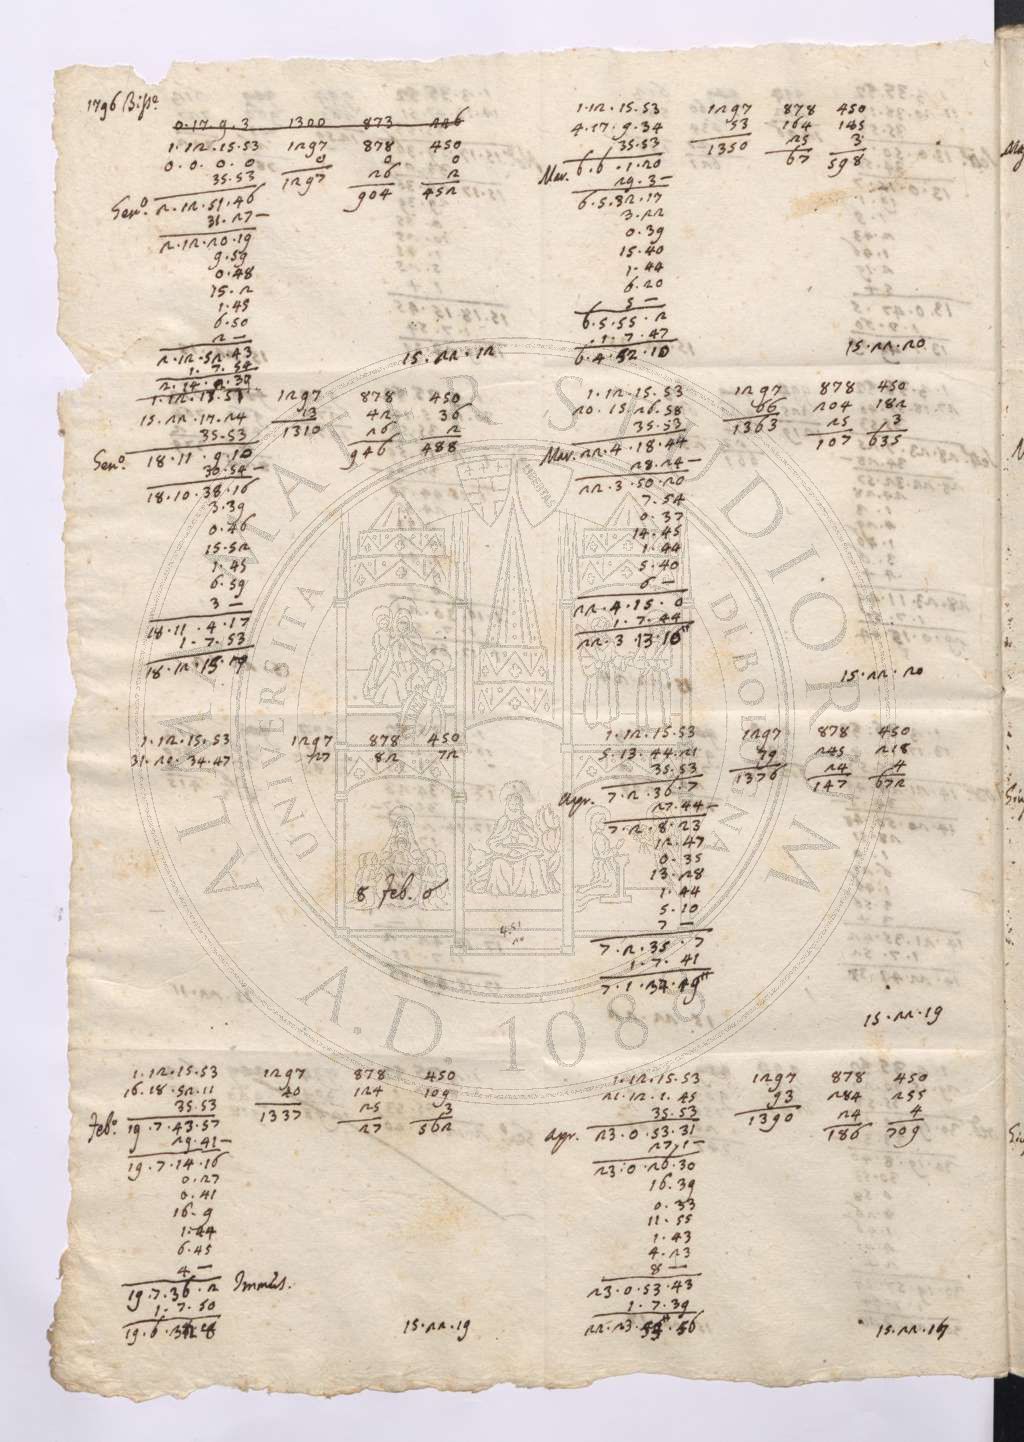 1796 Biss.o
0.17.9.3 1300 873 226
1.12.15.53 1297 878 450
0.0.0.0 0 0 0
35.53 1297 26 2
Gen.o 2.12.51.46 904 452
31.27–
2.12.20.19
9.59
0.48
15.2
1.45
6.50
2–
2.12.52.43
1.7.54
15.22.12
1297 878 450
15.22.17.24 13 42 36
35.53 1310 26 2
Gen.o 18.11.9.10 946 488
30.54–
18.10.38.16
3.39
0.46
15.52
1.45
6.59
3–
18.11.4.17
1.7.53
1.12.15.53 1297 878 450
31.20.34.47 27 82 72
8 Feb. 6
1.12.15.53 1297 878 450
16.18.52.11 40 124 109
35.53 1337 25 3
Feb.o 19.7.43.57 27 562
29.41–
19.7.14.16
0.27
0.41
16.9
1.44
6.45
4–
19.7.36.2 Immers.
1.7.50
15.22.19
1.12.15.53 1297 878 450
4.17.9.34 53 164 145
35.53 1350 25 3
Mar. 6.6.1.20 67 598
29.3–
6.5.32.17
3.22
0.39
15.40
1.44
6.20
5–
6.5.55.2
1.7.47
6.4.52.10
15.22.20
1.12.15.53 1297 878 450
20.15.26.58 66 204 182
35.53 1363 25 3
Mar. 22.4.18.44 107 635
28.24–
22.3.50.20
7.54
0.37
14.45
1.44
5.40
6–
22.4.15.0
1.7.44
22.3.13.16
15.22.20
1.12.15.53 1297 878 450
5.13.44.21 79 245 218
35.53 1376 24 4
Apr. 7.2.36.7 147 672
27.44–
7.2.8.23
12.47
0.35
13.28
1.44
5.10
7–
7.2.35.7
1.7.41
15.22.19
1.12.15.53 1297 878 450
21.12.1.45 93 284 255
35.53 1390 24 4
Apr. 23.0.53.31 186 709
27.1–
23.0.26.30
16.39
0.33
11.55
1.43
4.23
8–
23.0.53.43
1.7.39
15.22.16
ALMA MATER STUDIORUM
UNIVERSITÀ DI BOLOGNA
A.D. 1088